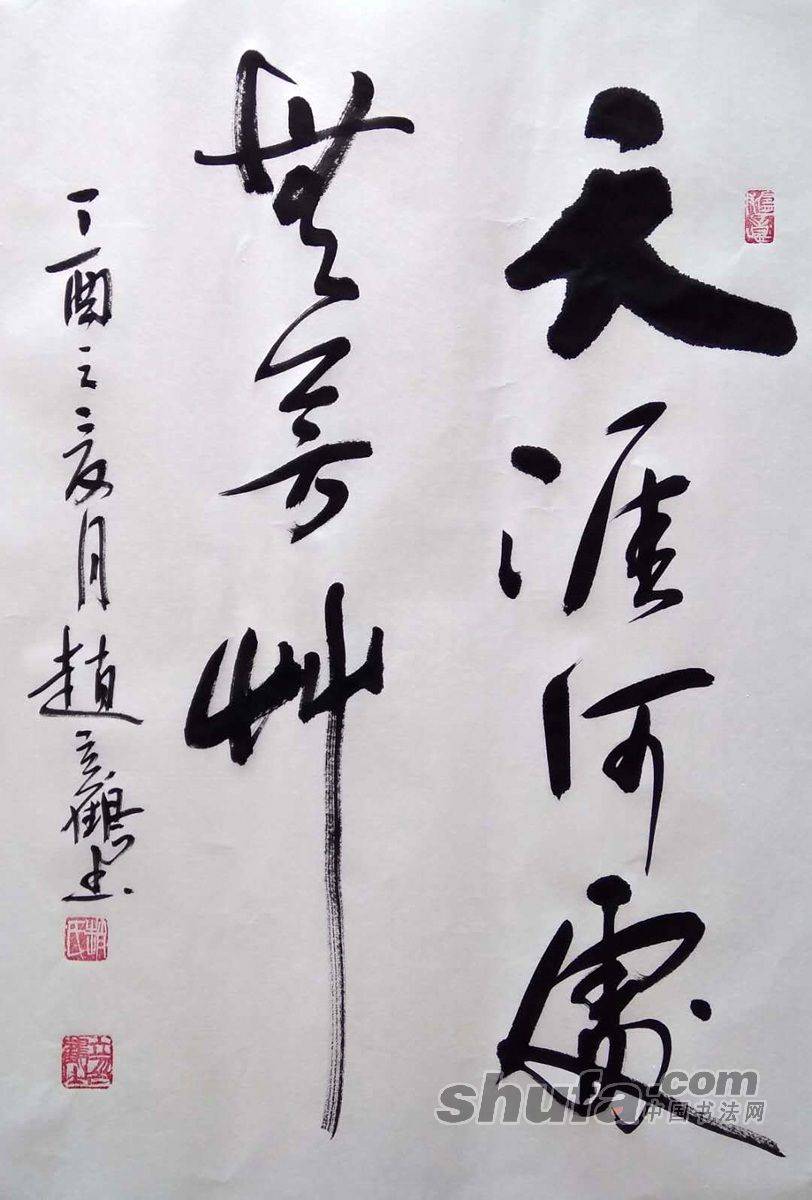 天涯何處
無芳艸
丁酉之夏月趙立鶴書
shufa.com
中国书法网